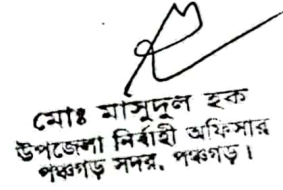 মোঃ মাসুদুল হক
উপজেলা নির্বাহী অফিসার
পঞ্চগড় সদর, পঞ্চগড়।